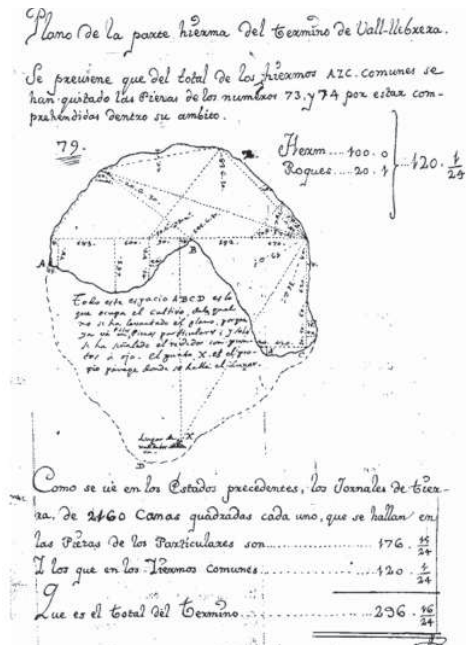 Plano de la parte hierma del termino de Vall-llebrera.
Se previene que del total de los hiermos AZC. comunes se
han quitado las Pieras de los numeros 73. y 74 por estar com-
prehendidas dentro su ambito.
79.
Herm....100.0
Roques....20.1
120. 1/24
A
B
Todo este espacio ABCD es lo
que ocupa el cultivo, del qual
no se ha levantado el plano, porque
ya va en Pieras particulares; y solo
se ha señalado el rededor con pun-
tos a ojo. El punto X. es el pro-
pio parage donde se halla el Lugar.
C
Lugar de X
D
Como se ve en los Estados precedentes, los Jornales de tier-
ra, de 2160 Canas quadradas cada uno, que se hallan en
las Pieras de los Particulares son............176. 15/24
I los que en los Iermos Comunes............120. 1/24
Que es el total del Termino............296. 16/24